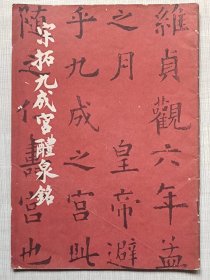 維貞觀六年孟
之月 皇帝避
乎九成之宮此
宋拓九成宮醴泉銘
隨之仁壽宮也